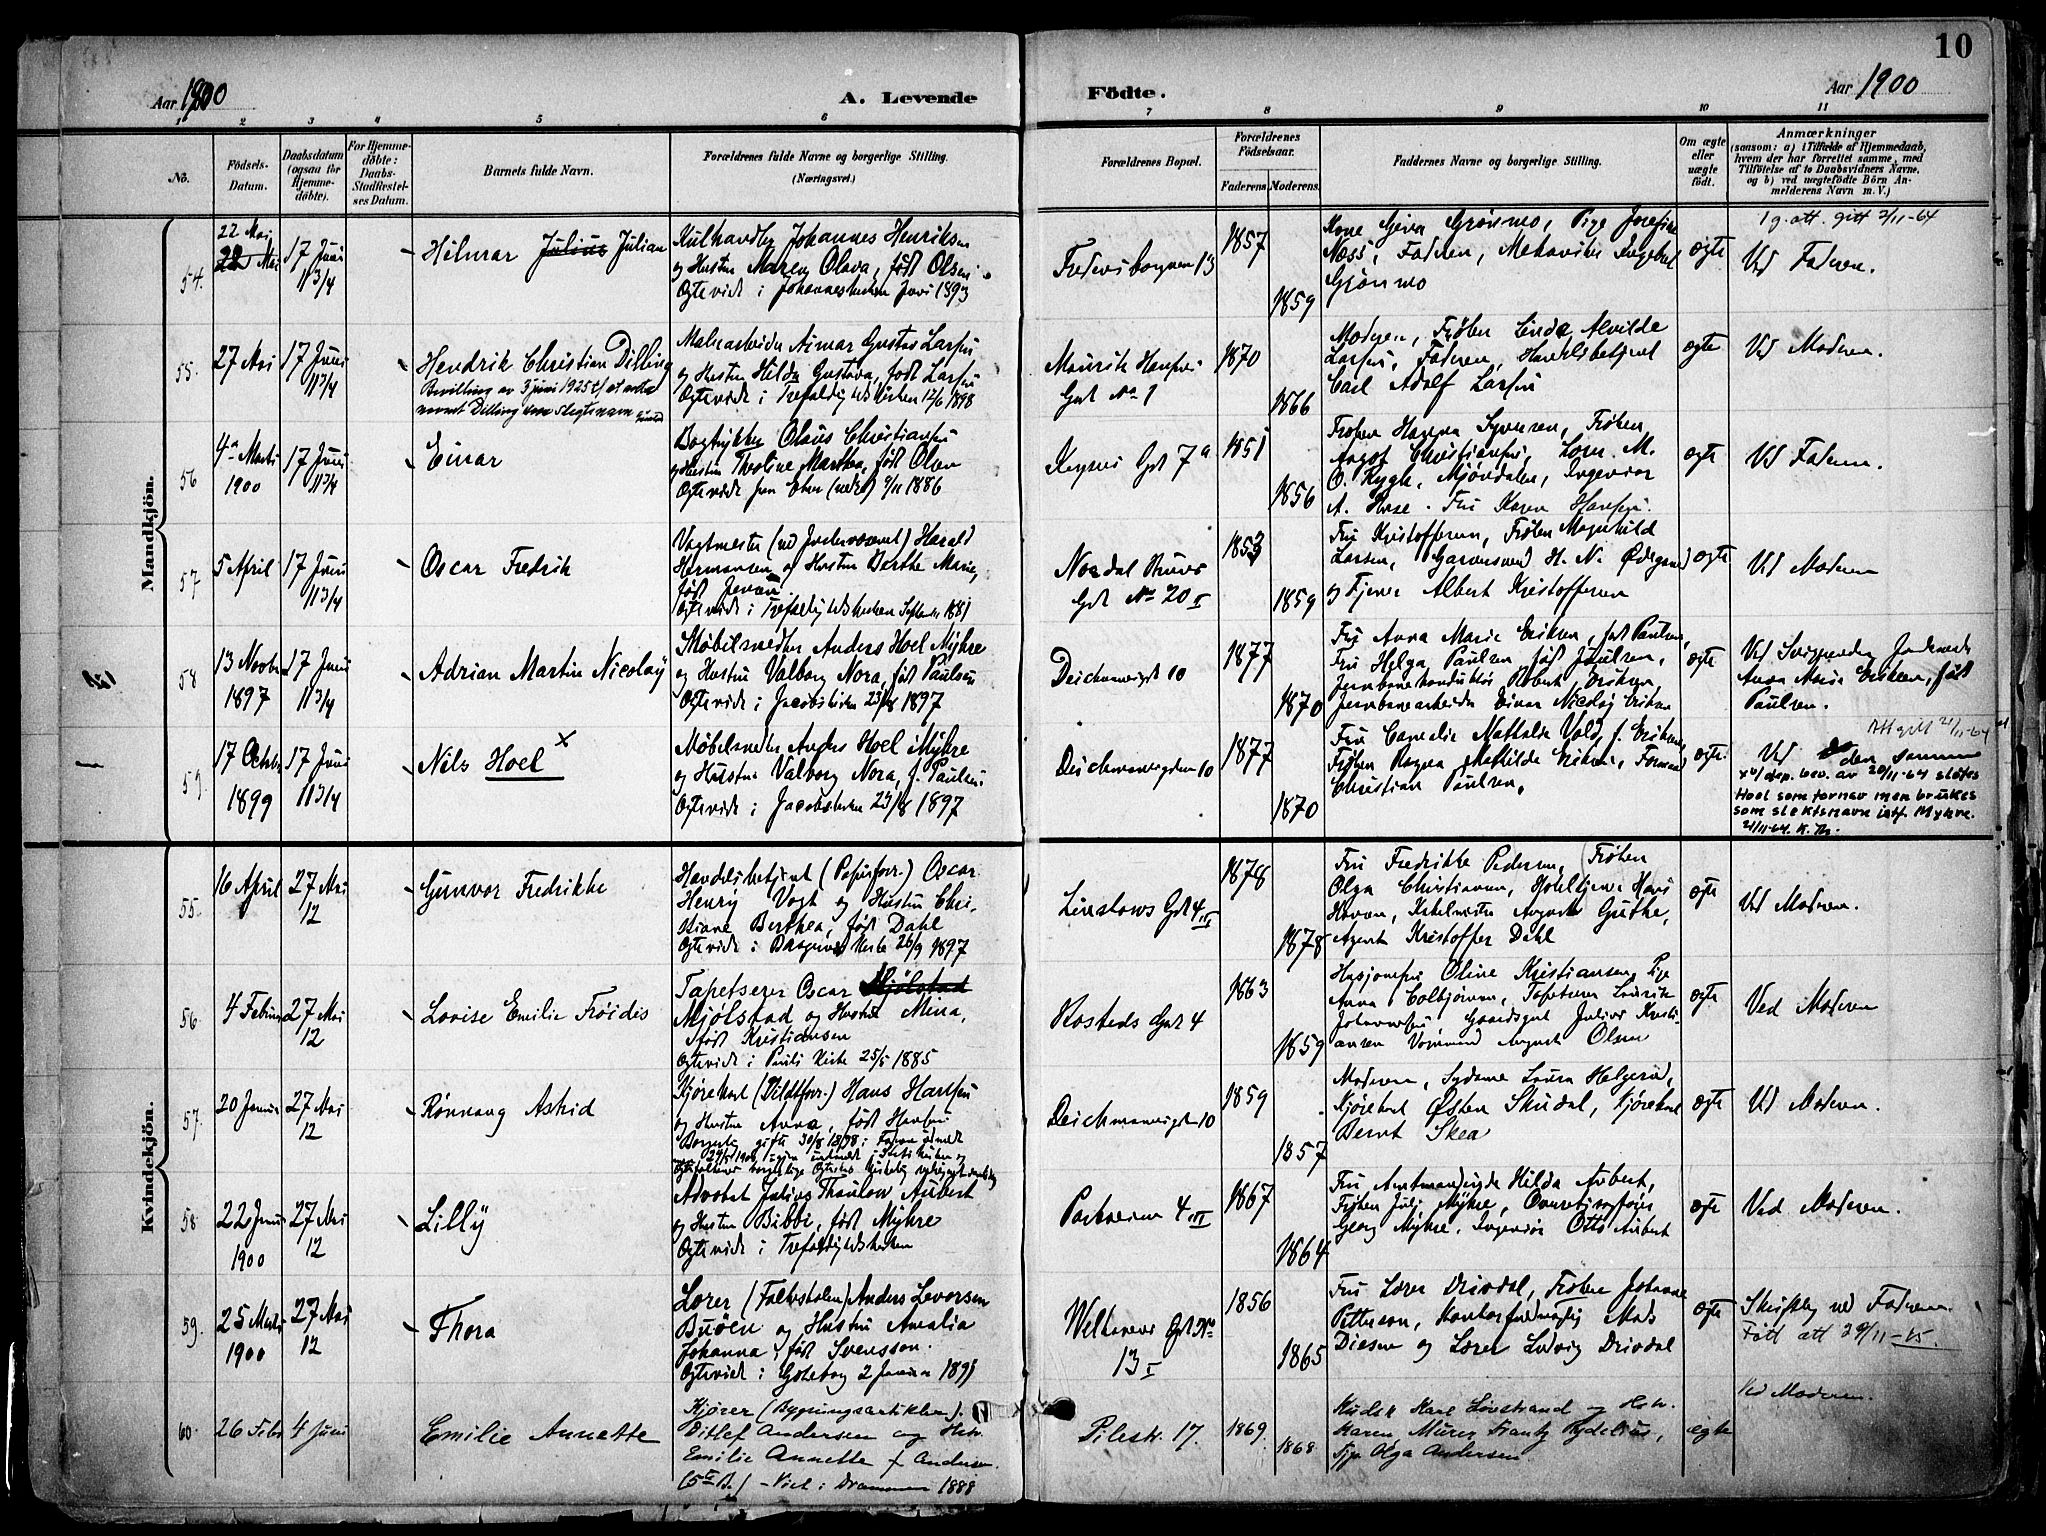 10
Aar 1900
A. Levende
Födte.
Aar 1900
1 2 3 4 5 6 7 8 9 10 11
No.
Födsels-Datum.
Daabsdatum (ogsaa for Hjemme-döbte).
For Hjemme-döbte: Daabs-Stadfæstel-ses Datum.
Barnets fulde Navn.
Forældrenes fulde Navne og borgerlige Stilling.
(Næringsvei.)
Forældrenes Bopæl.
Forældrenes Födselsaar.
Faderens. Moderens.
Faddernes Navne og borgerlige Stilling.
Om ægte eller uægte födt.
Anmærkninger
(saasom: a) i Tilfælde af Hjemmedaab, hvem der har forrettet samme, med Tilföielse af to Daabsvidners Navne, og b) ved uægtefödte Börn An-melderens Navn m. V.)
Mandkjön.
54.
22 Mai
17 Juni
11 3/4
Hilmar Julius Julian
Kulhandler Johannes Henriksen
og Hustru Maren Olava, født Olsen
Ægteviet i Johanneskirken Juni 1893
Fredensborgveien 13
1857
1859
Næss, Faderen,
ægte
1 g. att. gitt 2/11-64
Ved Faderen.
55.
27 Mai
17 Juni
11 3/4
Hendrik Christian Dilling
Bevilling av 3 juni 1925 til at anta
navnet Dilling som slegtsnavn
Malerarbeider Aimar Gustav Larsen
og Hustru Hilda Gustava, født Larsen
Ægteviet i Trefoldighedskirken 12/6 1898
Mauritz Hansens
Gade No 1
1870
1866
Moderen, Frøken Linda Alvilde
Larsen, Faderen, Handelsbetjent
Carl Adolf Larsen
ægte
Ved Moderen.
56
4de Marts
1900
17 Juni
11 3/4
Einar
Bogtrykker Olaus Christiansen
og Hustru Tholine Marthea, født Olsen
Keysers Gd 7a
1851
1856
A. Hose. Fru Karen Hansen.
ægte
Ved Faderen.
57
5 April
17 Juni
11 3/4
Oscar Fredrik
Vagtmester Harald
Hermansen og Hustru Berthe Marie,
født Jensen
Ægteviet i Trefoldighedskirken September 1881
Nordal Bruns
Gd No 20 I
1853
1859
Fru Kristoffersen, Frøken Magnhild
Larsen, Garversvend H. N. Ødegaard
og Tjener Albert Kristoffersen
ægte
Ved Moderen
58
13 Novbr
1897
17 Juni
11 3/4
Adrian Martin Nicolay
Møbelsnedker Anders Hoel Myhre
og Hustru Valborg Nora, født Paulsen
Ægteviet i Jacobskirken 23/8 1897
Deichmansgd 10
1877
1870
Fru Anna Marie Eriksen, født Paulsen,
Fru Helga Paulsen født Poulsen,
Jernbanekonduktør Robert Eriksen
Jernbanearbeider Einar Nicolay Eriksen
ægte
Anna Marie Eriksen, født
Paulsen.
59.
17 Octbr
1899
17 Juni
11 3/4
Nils Hoel x
Møbelsnedker Anders Hoel Myhre
og Hustru Valborg Nora, f. Paulsen
Ægteviet i Jacobskirken 23/8 1897
Deichmansgden 10
1877
1870
Fru Cornelie Mathilde Vold, f. Eriksen
Frøken Ragna Mathilde Eriksen, Formand
Christian Paulsen.
ægte
Att gitt 21/11-64
Ved den samme
x) v/ dep. bev. av 20/11-64 sløifes
Hoel som fornavn men brukes
som slektsnavn istf. Myhre.
21/11-64.
Kvindekjön.
55.
16 April
27 Mai
12
Gunvor Fredrikke
Handelsbetjent (Papirforr.) Oscar
Henry Vogt og Hustru Chri-
stiane Berthea, født Dahl
Ægteviet i Bragernes Kirke 26/9 1897
Linstows Gd 4 II
1878
1878
Fru Fredrikke Pedersen, Frøken
Olga Christiansen, Hotelltjener Hans
Agent Kristoffer Dahl
ægte
Ved Moderen.
56
4 Februar
27 Mai
12
Lovise Emilie Frøidis
Tapetserer Oscar Mjølstad
Mjølstad og Hustru Mina,
født Kristiansen
Ægteviet i Pauls Kirke 25/5 1885
Rosteds Gd 4
1863
1859
Husjomfru Oline Kristiansen, Pige
Anna Colbjørnsen, Tapetserer Lauritz
Johannesen, Gaardsgut Julius Kristi-
ansen August Olsen
ægte
Ved Moderen
57.
20 Januar
27 Mai
12
Rønnaug Astrid
Kjørekarl (Vildtforr.) Hans Hansen
og Hustru Anna, født Hansen
Borgerlig gifte 30/8 1898
Deichmansgden 10
1859
1857
Moderen, Sydame Laura Helgerud,
Kjørekarl Østen Skudal, Kjørekarl
Bernt Skea
ægte
Ved Moderen.
58.
22 Januar
1900
27 Mai
12
Lilly
Advokat Julius Thaulow Aubert
og Hustru Bibbi, født Myhre
Ægteviet i Trefoldighedskirken
Parkveien 4 III
1867
1864
Fru Hilda Aubert,
Frøken Juli Myhre,
Georg Myhre, Ingeniør Otto Aubert
ægte
Ved Moderen.
59.
25 Marts
1900
27 Mai
12
Thora
Lærer (Folkeskolen) Anders Levorsen
Buøen og Hustru Amalia
Johanna, født Svensson.
Ægteviet i Gøteborg 2 Januar 1891
Welhavens Gd No
13 I
1856
1865
Fru Lærer Drivdal, Frøken Johanne
Petterson, Kontorfuldmægtig Mads
Diesen og Lærer Ludvig Drivdal
ægte
Skriftlig ved Faderen.
Født att 29/11-45.
60
26 Febr
4 Juni
Emilie Annette
Kjører (Bygningsartikler)
Ditlef Andersen og Hstr.
Emilie Annette f Andersen
(5te B.) – Viet i Drammen 1888
Pilestr. 17.
1869
1868
Kudsk Karl Lovstrand og Hstr.
Karen, Murer Frantz Rydelius,
Pige Olga Andersen
ægte
Ved Moderen.